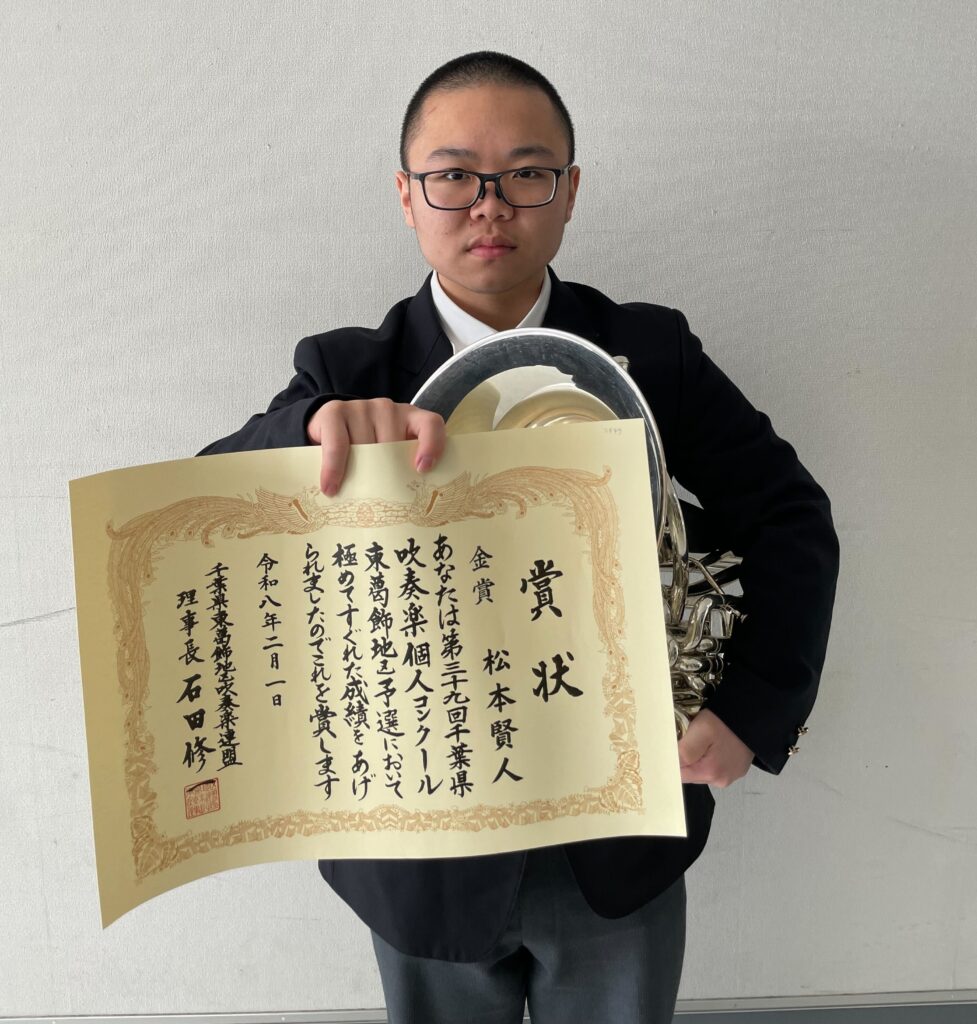 賞状
金賞
松本賢人
あなたは第三十九回千葉県
吹奏楽個人コンクール
東葛飾地区予選において
極めてすぐれた成績をあげ
られましたのでこれを賞します
令和八年二月一日
千葉県東葛飾地区吹奏楽連盟
理事長 石田修